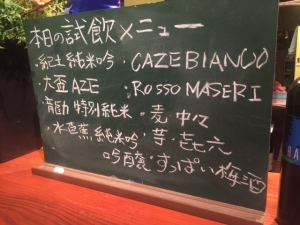 本日の試飲メニュー
・紀土純米吟 ・CAZEBIANCO
・大盃AZE ・ROSSO MASERI
・龍勢 特別純米 ・麦 中々
・水芭蕉 純米吟 ・芋 㐂六
吟醸 すっぱい梅酒